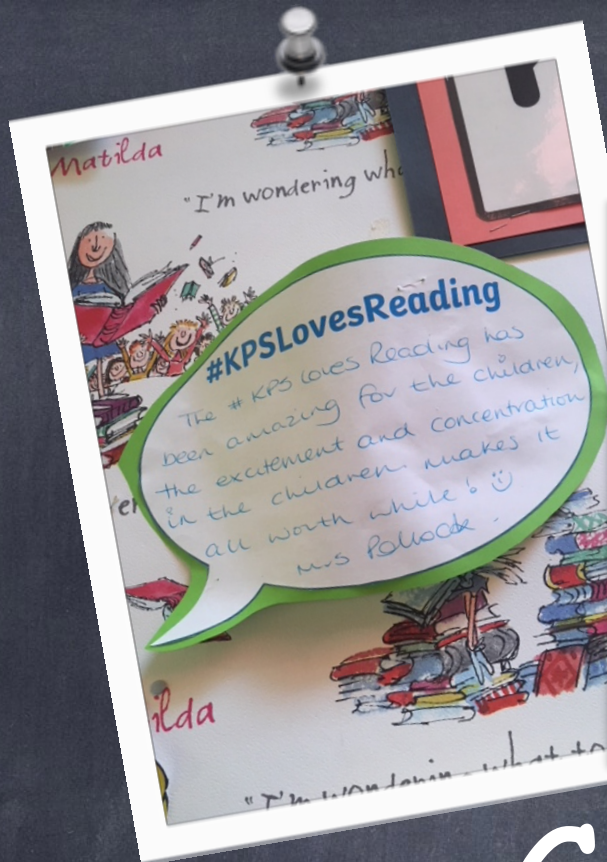 Matilda
"I'm wondering wha
#KPSLovesReading
The #KPS Loves Reading has
been amazing for the children,
the excitement and concentration
in the children makes it
all worth while! ☺
Mrs Pollock.
er
ilda
"I'm wondering what to